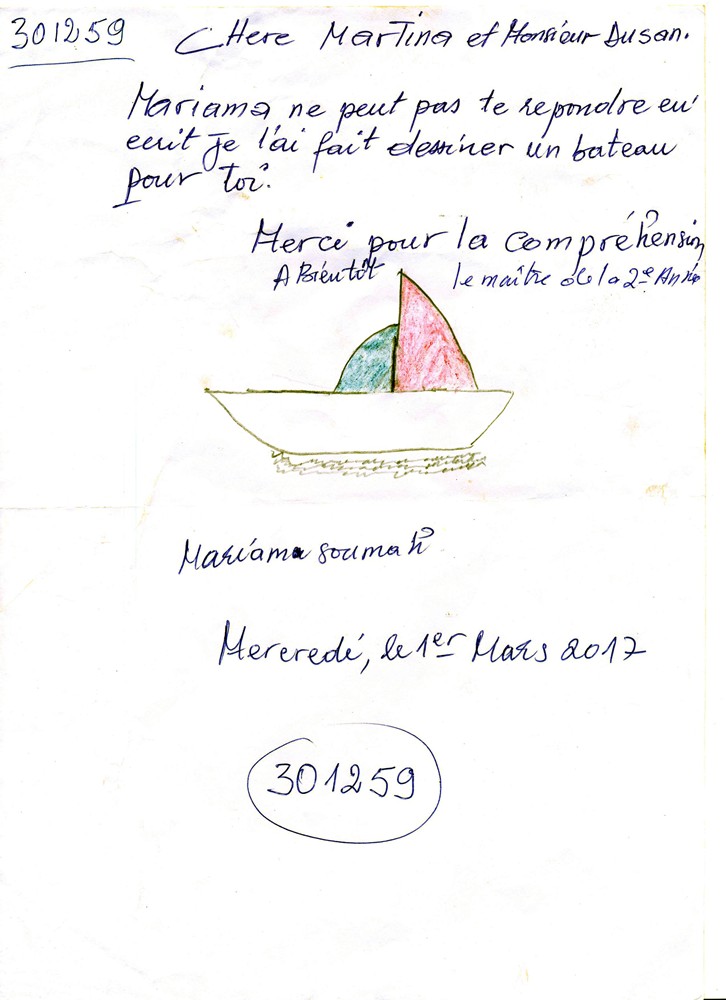 301259
CHere Martina et Monsieur Dusan.
Mariama ne peut pas te repondre en
ecrit je l'ai fait dessiner un bateau
pour toi.
Merci pour la compréhension
A Bientôt le maître de la 2e Année
Mariama soumah
Mercredi, le 1er Mars 2017
301259